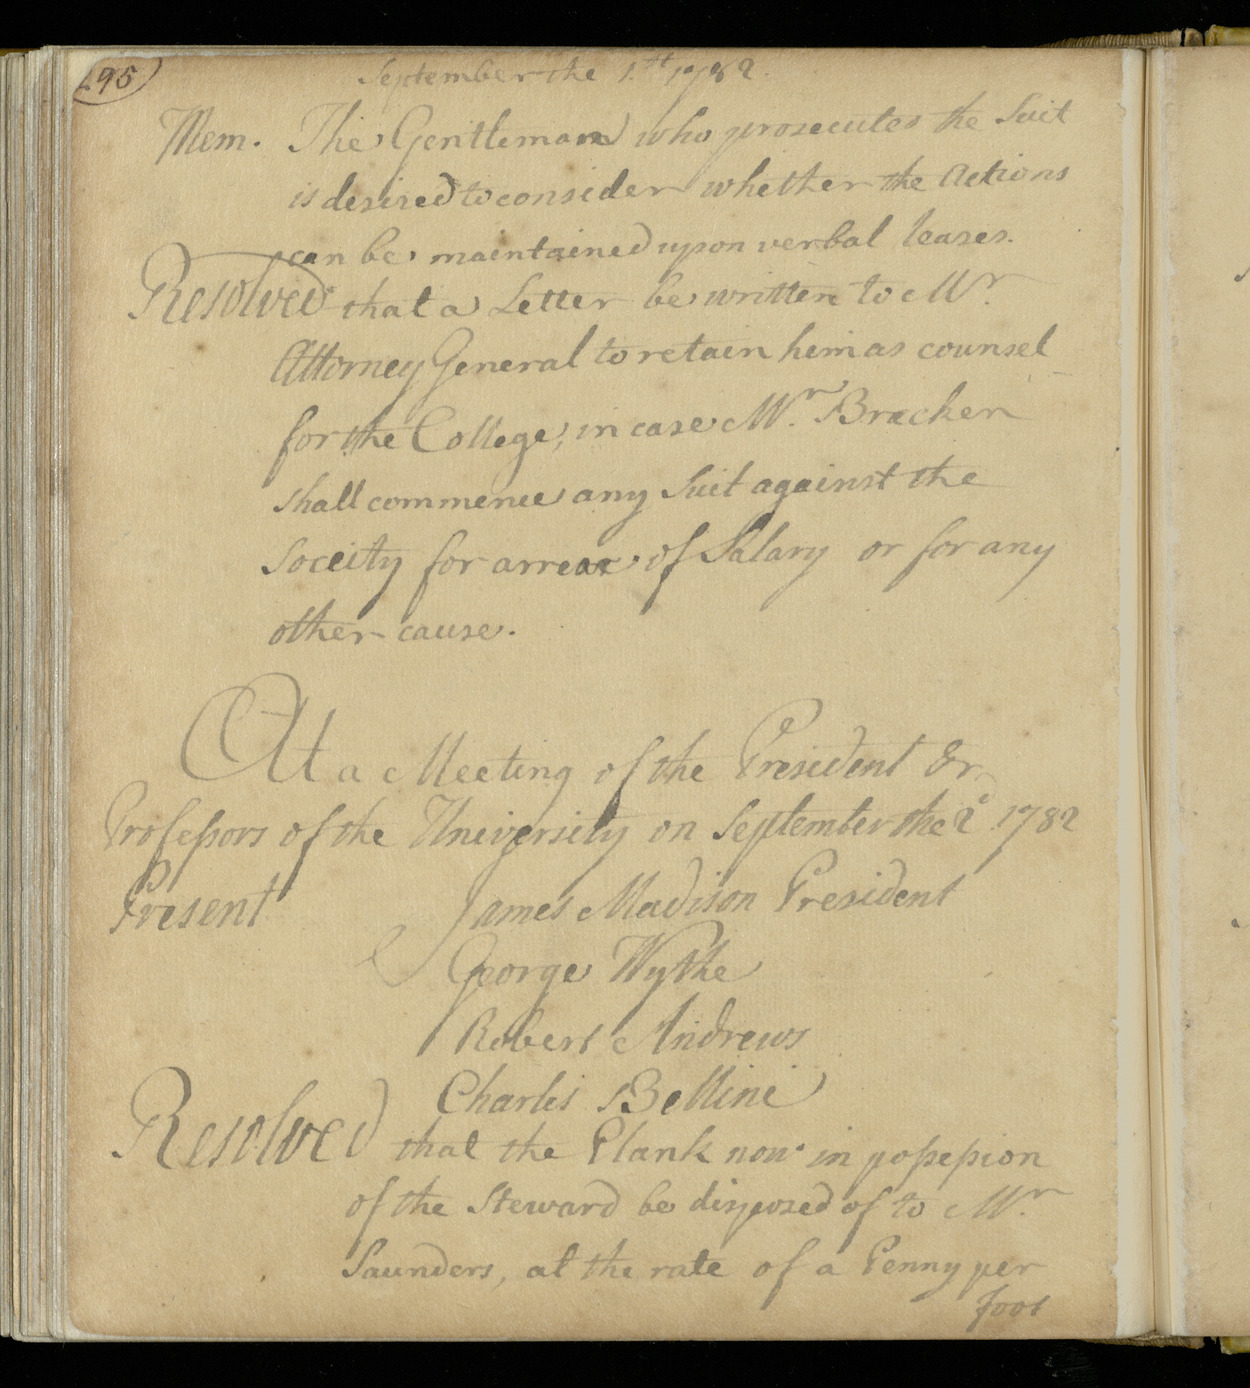 295
September the 1.st 1782.
Mem. The Gentleman who prosecutes the Suit
is desired to consider whether the Actions
can be maintained upon verbal leases.
Resolved that a Letter be written to Mr.
Attorney General to retain him as counsel
for the College, in case Mr. Bracken
shall commence any Suit against the
Soceity for arrear of Salary or for any
other cause.
At a Meeting of the President &
Professors of the University on September the 2d 1782
Present James Madison President
George Wythe
Robert Andrews
Charles Bellini
Resolved that the Plank now in possession
of the Steward be disposed of to Mr.
Saunders, at the rate of a Penny per
foot